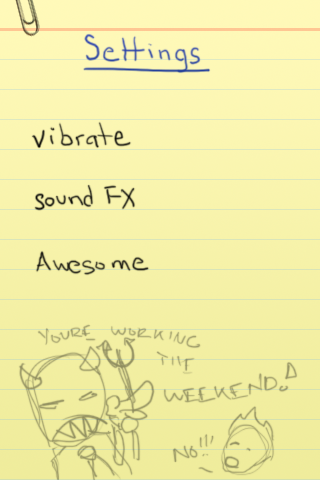 Settings
vibrate
sound FX
Awesome
YOURE WORKING
THE
WEEKEND!
NO!!!